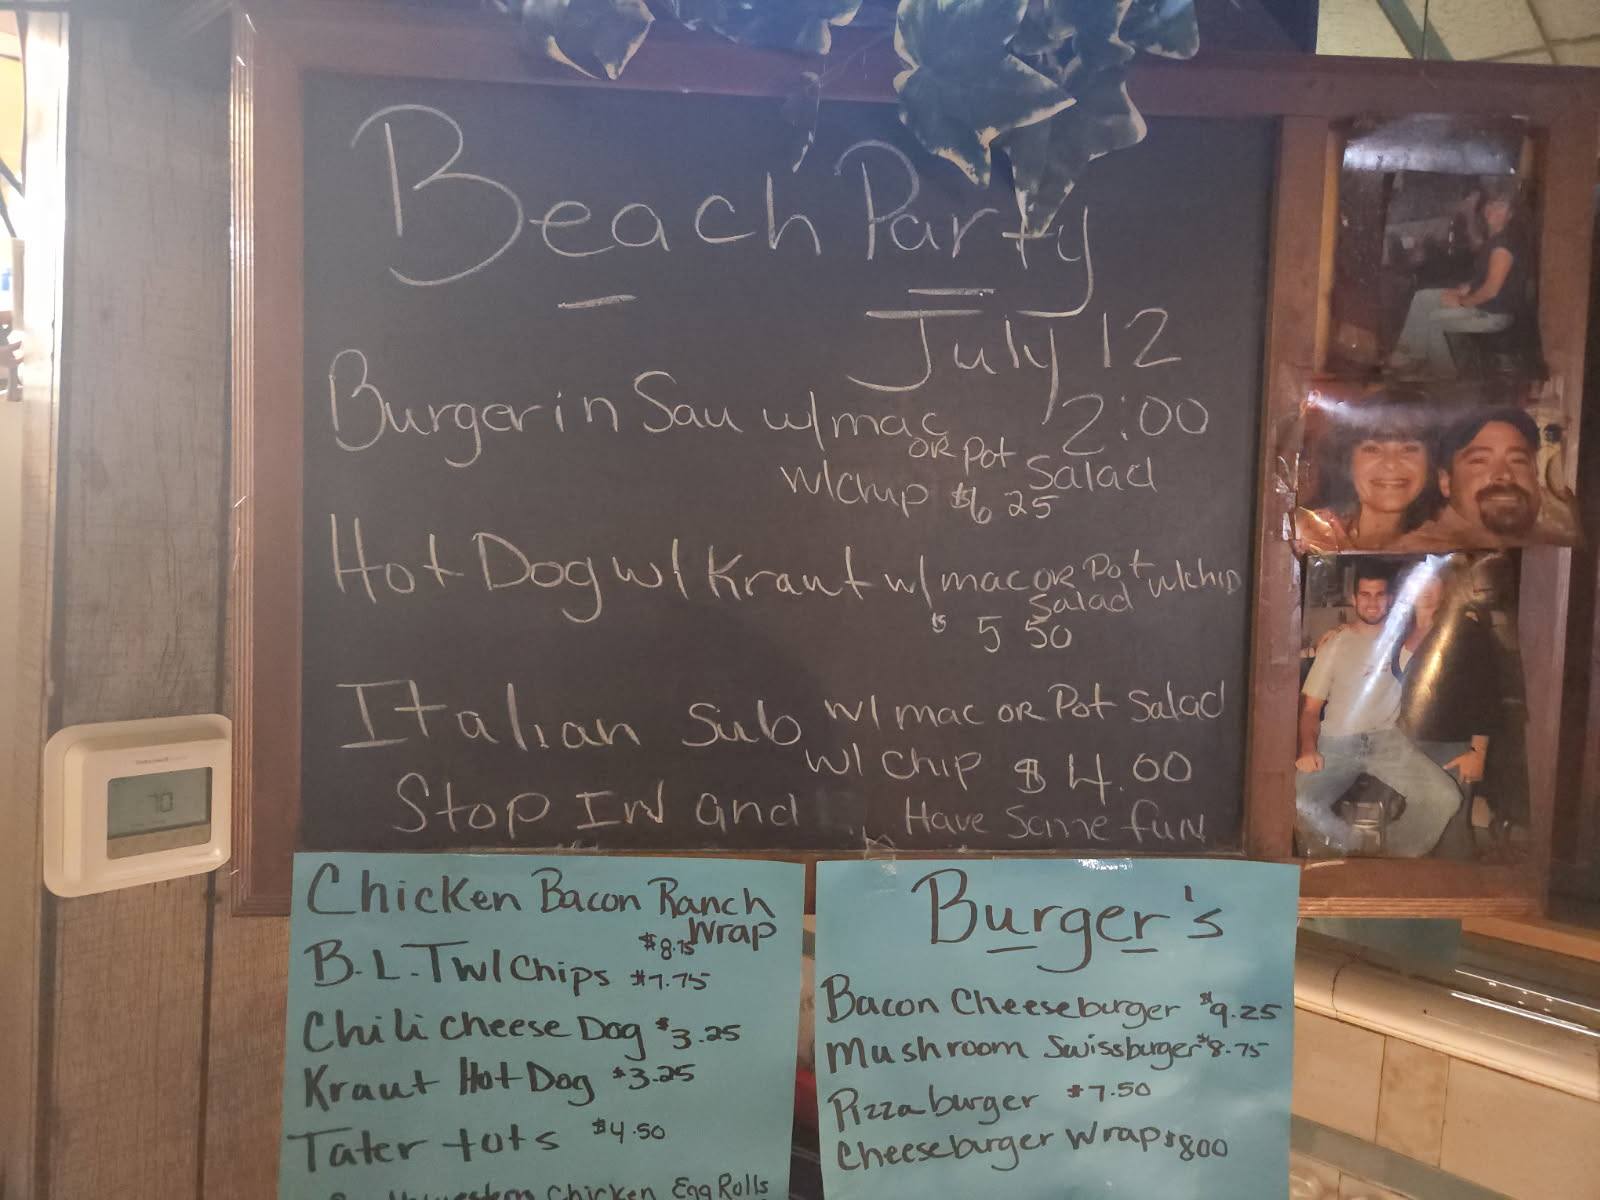 Beach Party
July 12
Burger in Sau w/mac 2:00
OR Pot Salad
w/chip $6 25
Hot Dog w/ Kraut w/mac OR Pot w/chip
Salad
$ 5 50
Italian Sub w/ mac OR Pot Salad
w/ chip $ 4.00
Stop IN and Have Some fun
70
Chicken Bacon Ranch
Wrap
$8.75
B.L.T w/ Chips $7.75
Chili cheese Dog $3.25
Kraut Hot Dog $3.25
Tater tots $4.50
Chicken Egg Rolls
Burger's
Bacon Cheeseburger $9.25
Mushroom Swissburger $8.75
Pizzaburger $7.50
Cheeseburger Wrap $800